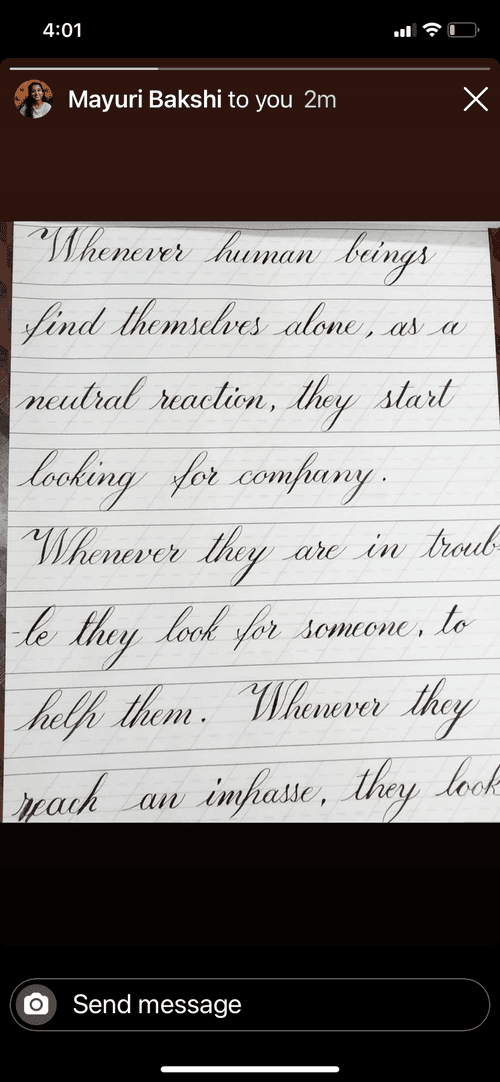 4:01
Mayuri Bakshi to you 2m
Whenever human beings
find themselves alone, as a
neutral reaction, they start
looking for company.
Whenever they are in troub-
le they look for someone, to
help them. Whenever they
reach an impasse, they look
Send message